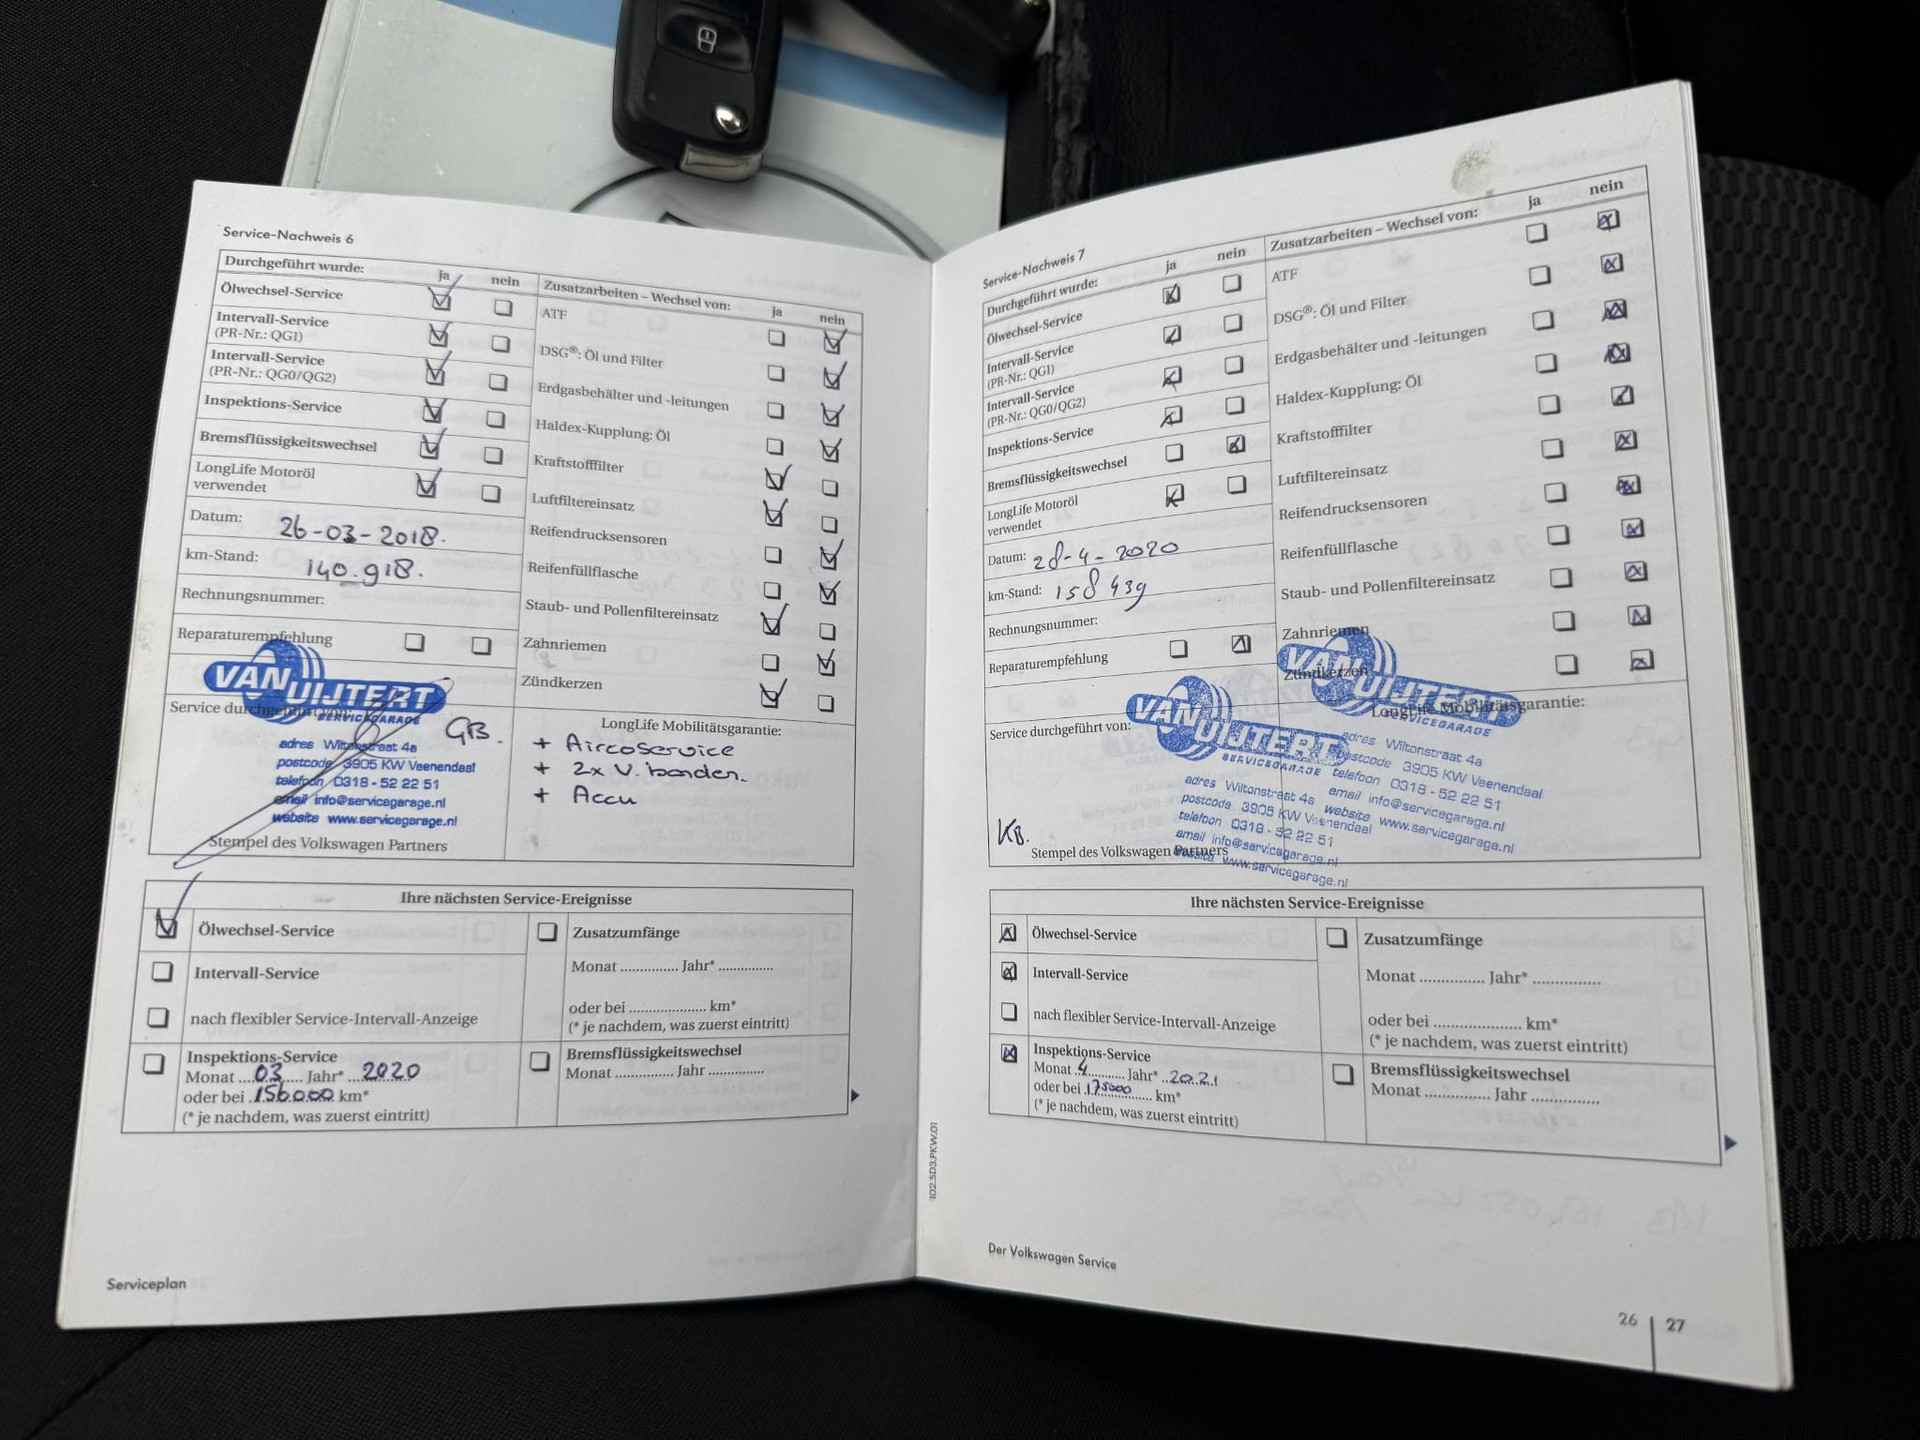 Service-Nachweis 6
Durchgeführt wurde: ja nein
Ölwechsel-Service
Intervall-Service
(PR-Nr.: QG1)
Intervall-Service
(PR-Nr.: QG0/QG2)
Inspektions-Service
Bremsflüssigkeitswechsel
LongLife Motoröl
verwendet
Datum: 26-03-2018.
km-Stand: 140.918.
Rechnungsnummer:
Reparaturempfehlung
Zusatzarbeiten – Wechsel von: ja nein
ATF
DSG®: Öl und Filter
Erdgasbehälter und -leitungen
Haldex-Kupplung: Öl
Kraftstofffilter
Luftfiltereinsatz
Reifendrucksensoren
Reifenfüllflasche
Staub- und Pollenfiltereinsatz
Zahnriemen
Zündkerzen
VAN UIJTERT
SERVICEGARAGE
Service durchgeführt von:
GB.
adres Wiltonstraat 4a
postcode 3905 KW Veenendaal
telefoon 0318 - 52 22 51
email info@servicegarage.nl
website www.servicegarage.nl
Stempel des Volkswagen Partners
LongLife Mobilitätsgarantie:
+ Aircoservice
+ 2x V. banden.
+ Accu
Ihre nächsten Service-Ereignisse
Ölwechsel-Service
Intervall-Service
nach flexibler Service-Intervall-Anzeige
Inspektions-Service
Monat ....03.... Jahr* ...2020
oder bei .156000 km*
(* je nachdem, was zuerst eintritt)
Zusatzumfänge
Monat ............... Jahr* ..............
oder bei .................... km*
(* je nachdem, was zuerst eintritt)
Bremsflüssigkeitswechsel
Monat ............... Jahr ..............
Serviceplan
Service-Nachweis 7
Durchgeführt wurde: ja nein
Ölwechsel-Service
Intervall-Service
(PR-Nr.: QG1)
Intervall-Service
(PR-Nr.: QG0/QG2)
Inspektions-Service
Bremsflüssigkeitswechsel
LongLife Motoröl
verwendet
Datum: 28-4-2020
km-Stand: 158439
Rechnungsnummer:
Reparaturempfehlung
Zusatzarbeiten – Wechsel von: ja nein
ATF
DSG®: Öl und Filter
Erdgasbehälter und -leitungen
Haldex-Kupplung: Öl
Kraftstofffilter
Luftfiltereinsatz
Reifendrucksensoren
Reifenfüllflasche
Staub- und Pollenfiltereinsatz
Zahnriemen
Zündkerzen
Service durchgeführt von:
VAN UIJTERT
SERVICEGARAGE
adres Wiltonstraat 4a
postcode 3905 KW Veenendaal
telefoon 0318 - 52 22 51
email info@servicegarage.nl
website www.servicegarage.nl
KB.
Stempel des Volkswagen Partners
LongLife Mobilitätsgarantie:
VAN UIJTERT
SERVICEGARAGE
adres Wiltonstraat 4a
postcode 3905 KW Veenendaal
telefoon 0318 - 52 22 51
email info@servicegarage.nl
website www.servicegarage.nl
Ihre nächsten Service-Ereignisse
Ölwechsel-Service
Intervall-Service
nach flexibler Service-Intervall-Anzeige
Inspektions-Service
Monat .4.......... Jahr* ..2021
oder bei .175000 km*
(* je nachdem, was zuerst eintritt)
Zusatzumfänge
Monat ............... Jahr* ...............
oder bei .................... km*
(* je nachdem, was zuerst eintritt)
Bremsflüssigkeitswechsel
Monat ............... Jahr ...............
102.5D3.PKW.01
Der Volkswagen Service
26 27